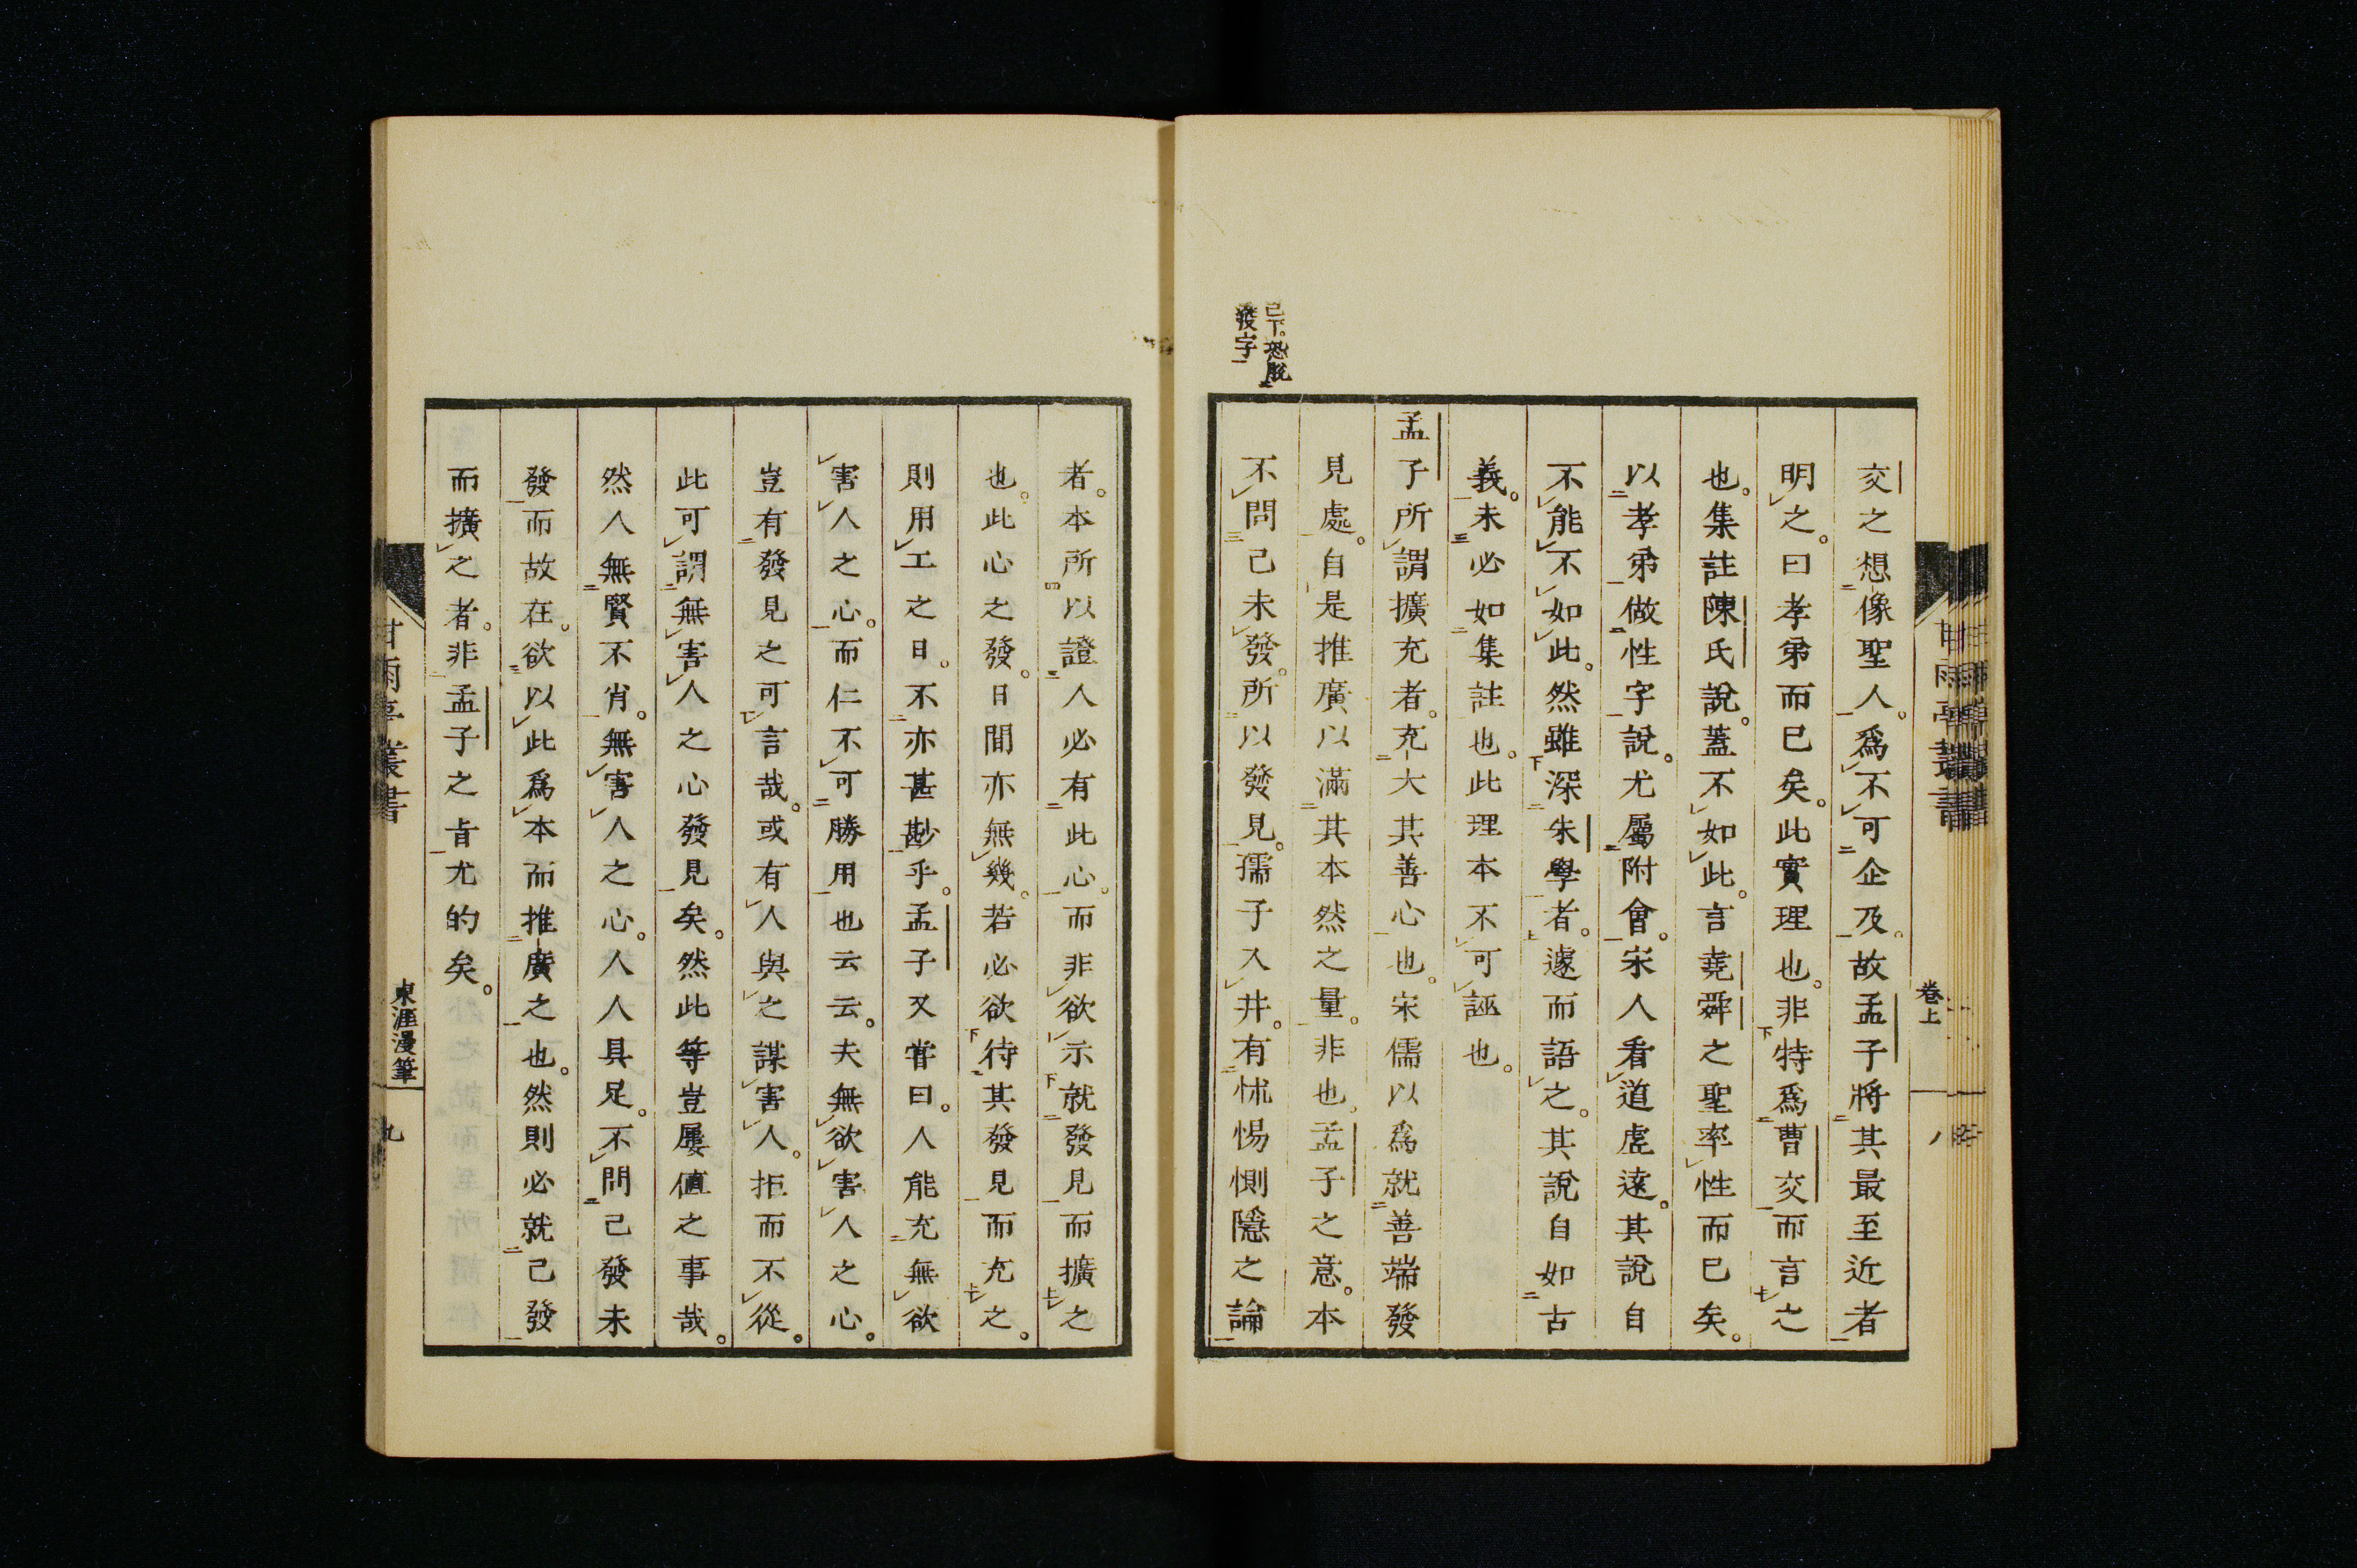 交之想像聖人。爲不可企及。故孟子將其最至近者
明之。曰孝弟而已矣。此實理也。非特爲曹交而言之
也。集註陳氏說。蓋不如此。言堯舜之聖率性而已矣。
以孝弟做性字說。尤屬附會。宋人看道虛遠。其說自
不能不如此。然雖深朱學者。遽而語之。其說自如古
義。未必如集註也。此理本不可誣也。
孟子所謂擴充者。充大其善心也。宋儒以爲就善端發
見處。自是推廣以滿其本然之量。非也。孟子之意。本
不問己未發。所以發見。孺子入井。有怵惕惻隱之論
己下。恐脫
發字
卷上
八
者。本所以證人必有此心。而非欲示就發見而擴之
也。此心之發。日間亦無幾。若必欲待其發見而充之。
則用工之日。不亦甚尠乎。孟子又嘗曰。人能充無欲
害人之心。而仁不可勝用也云云。夫無欲害人之心。
豈有發見之可言哉。或有人與之謀害人。拒而不從。
此可謂無害人之心發見矣。然此等豈屢値之事哉。
然人無賢不肖。無害人之心。人人具足。不問己發未
發而故在。欲以此爲本而推廣之也。然則必就己發
而擴之者。非孟子之旨尤的矣。
甘雨亭叢書
東涯漫筆
九